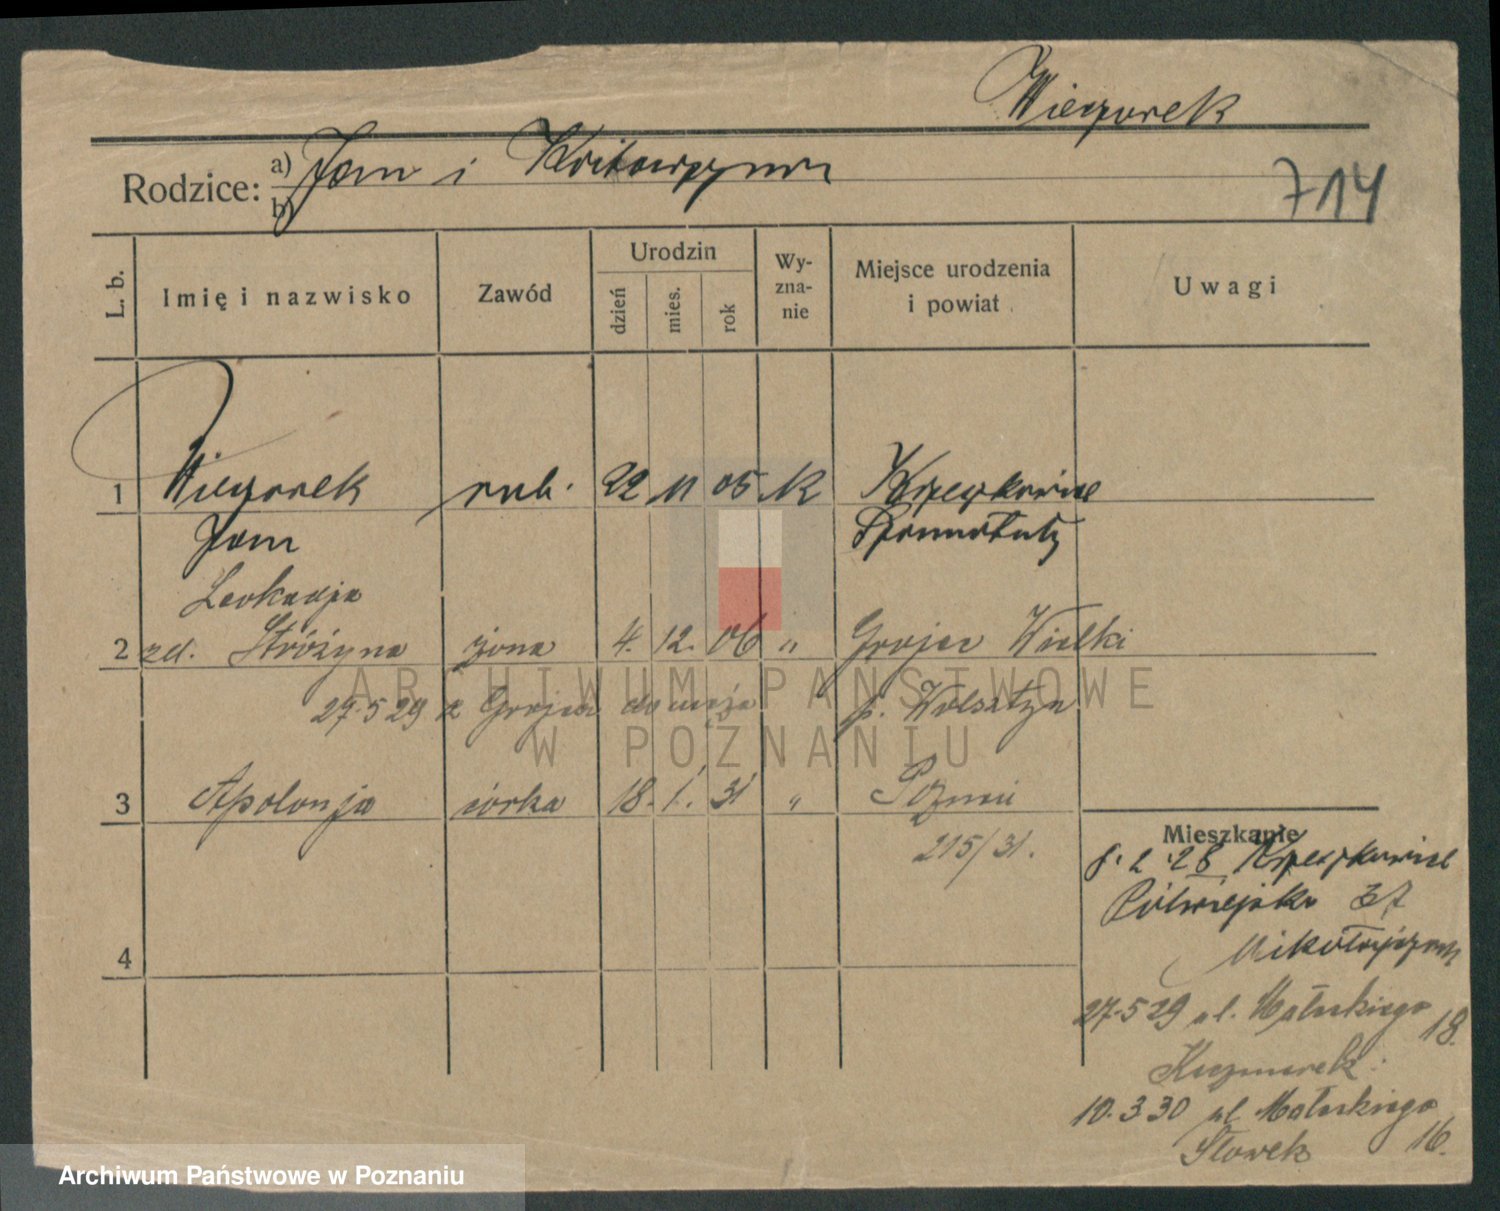 Wieczorek
Rodzice: a) Jan i Katarzyna
b)
714
L. b. Imię i nazwisko Zawód Urodzin dzień mies. rok Wy-zna-nie Miejsce urodzenia i powiat Uwagi
1 Wieczorek rob. 22 11 05 k
Jan Szamotuły
Leokadja
2 zd. Stróżyna żona 4. 12. 06 " Grojec Wielki
27.5 29 z Grojca do męża p. Wolsztyn
3 Apolonja córka 18. 1. 31 " Poznań
215/31.
4
Mieszkanie
8.2.28
Półwiejska 37
27.5 29 ul. Małeckiego 18.
Kaczmarek
10.3 30 ul Małeckiego 16.
Słowek
ARCHIWUM PAŃSTWOWE
W POZNANIU
Archiwum Państwowe w Poznaniu